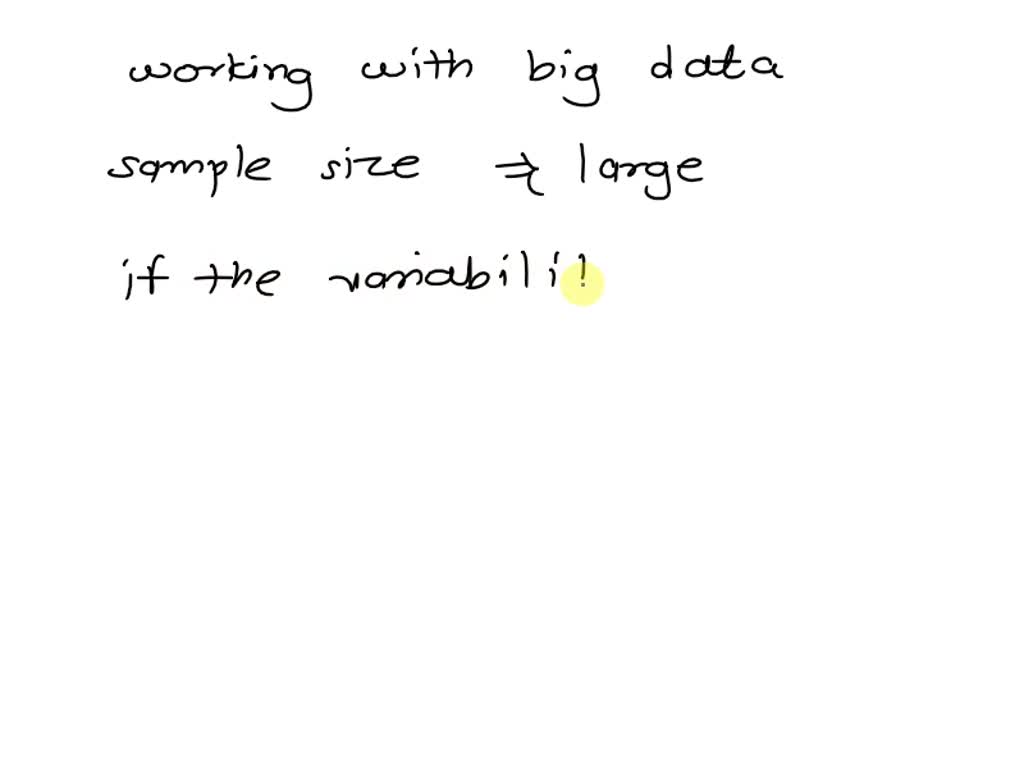 working with big data
sample size ⇒ large
if the variabili